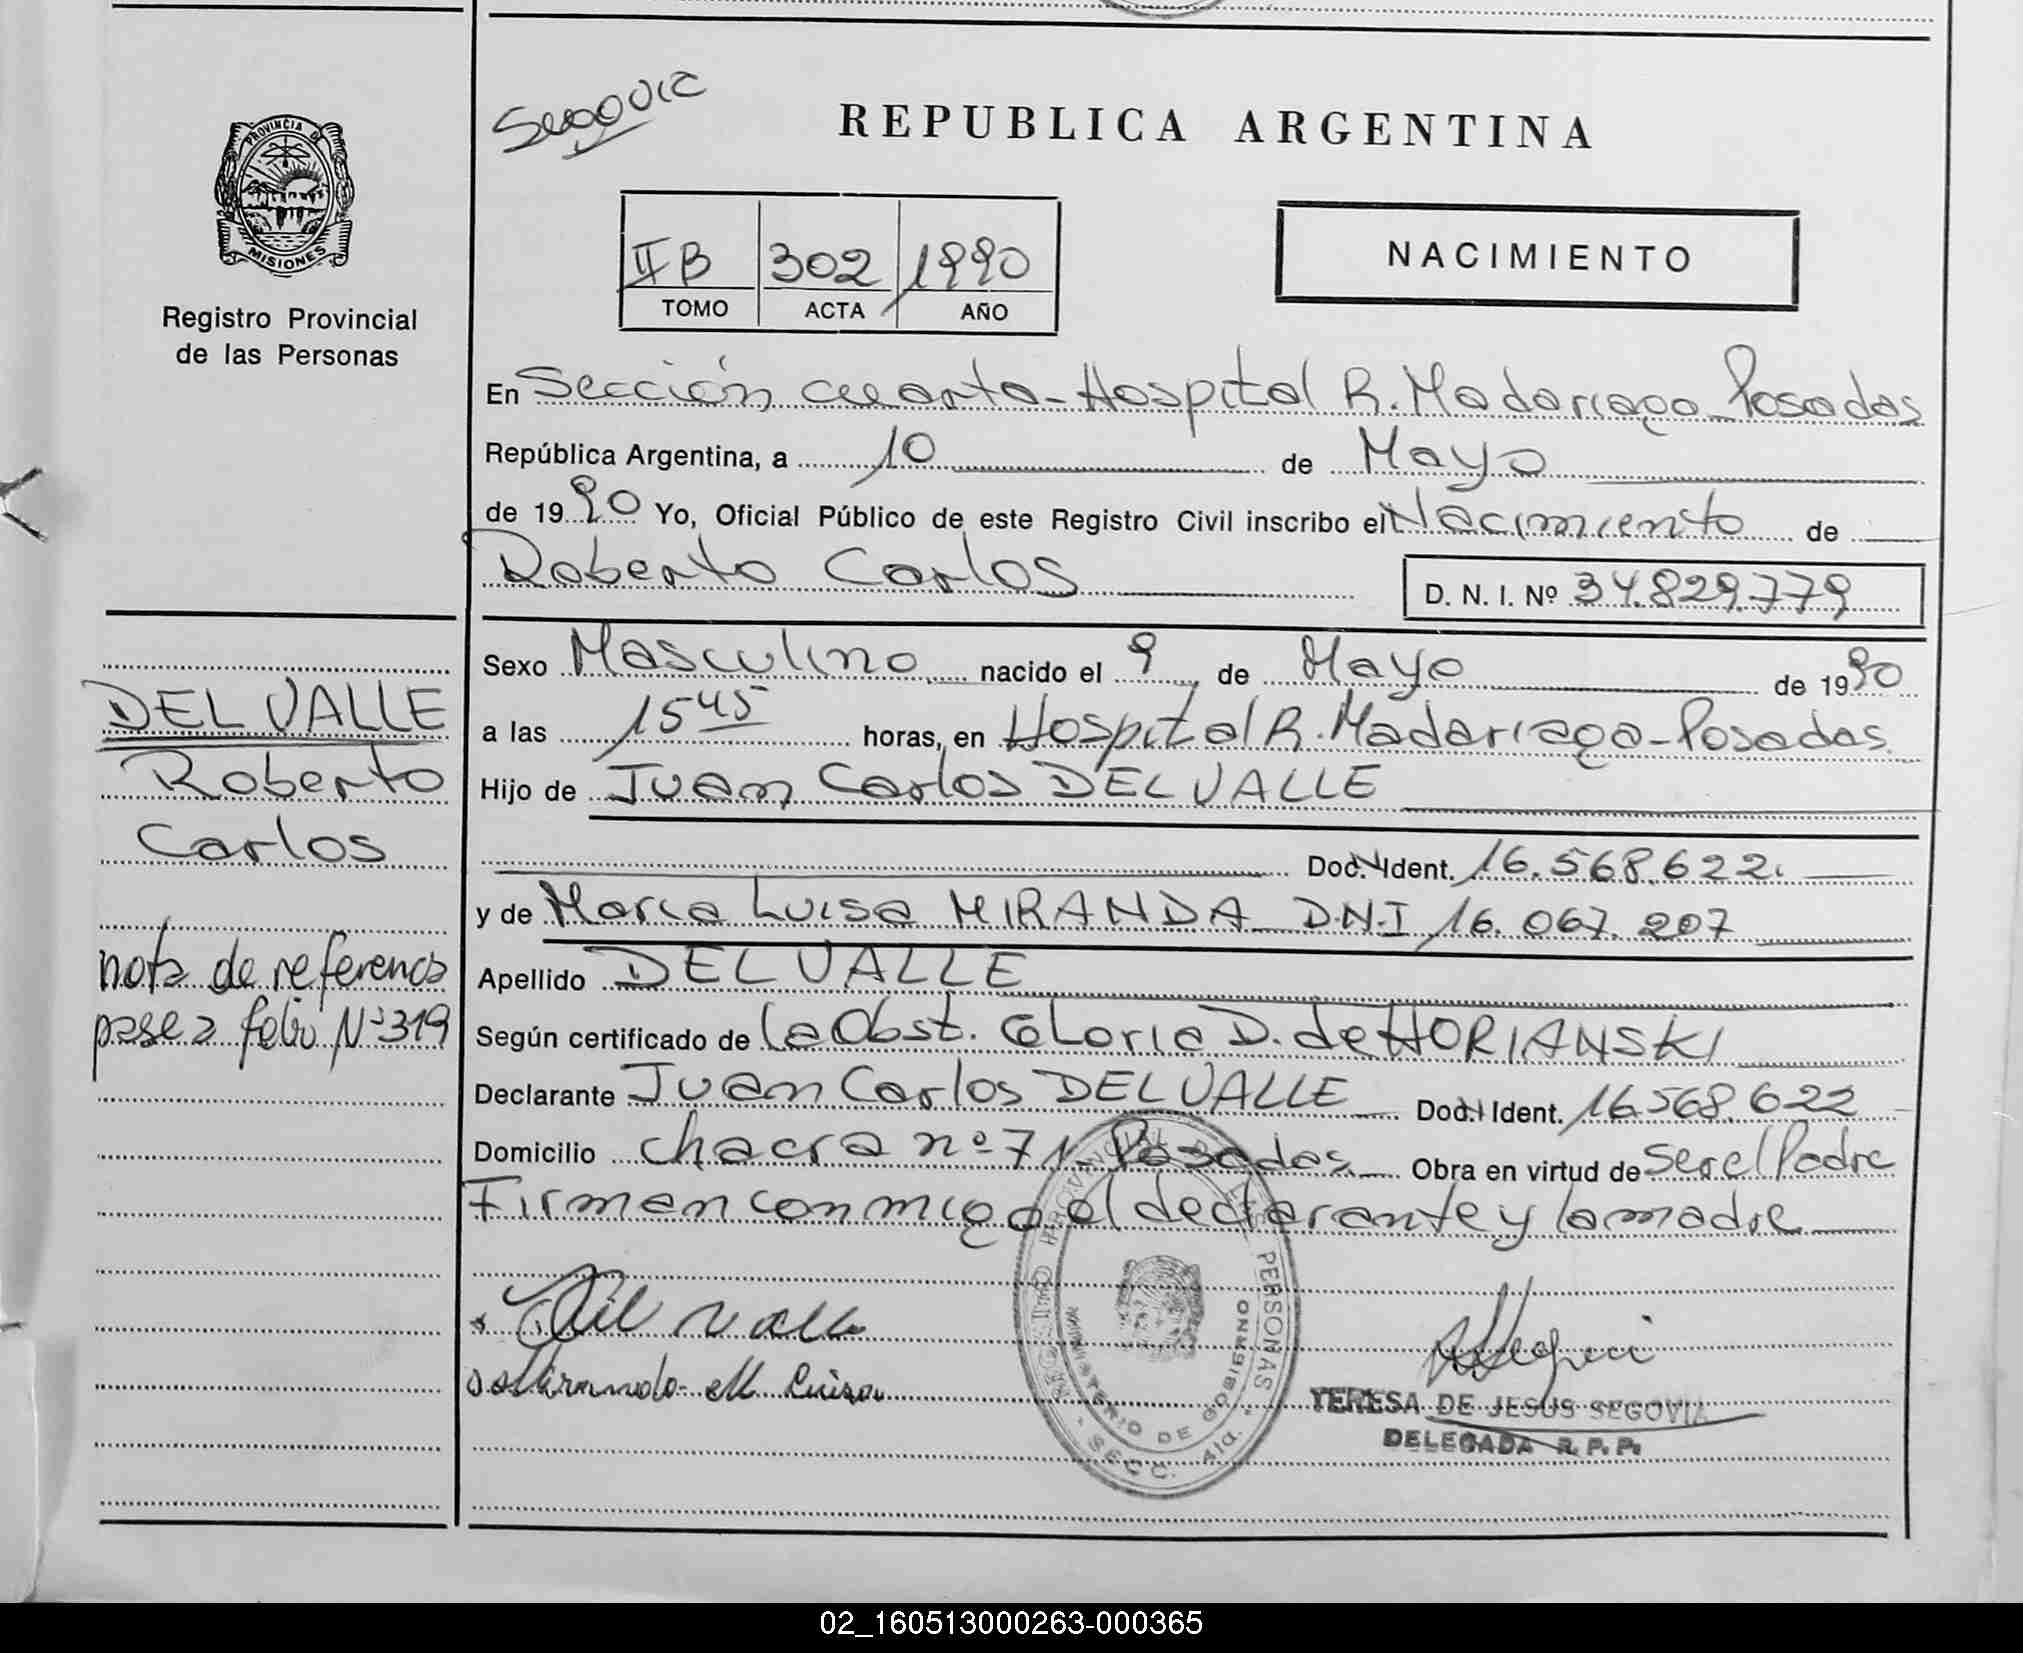 Segovia
REPUBLICA ARGENTINA
PROVINCIA DE
MISIONES
Registro Provincial
de las Personas
II B 302 1990
TOMO ACTA AÑO
NACIMIENTO
En Sección cuarta-Hospital R. Madariaga-Posadas
República Argentina, a 10 de Mayo
de 1990 Yo, Oficial Público de este Registro Civil inscribo el Nacimiento de
Roberto Carlos D. N. I. Nº 34.829.779
Sexo Masculino nacido el 9 de Mayo de 1990
a las 15 45 horas, en Hospital R. Madariaga-Posadas
Hijo de Juan Carlos DEL VALLE
Doc. Ident. 16.568.622.
y de Maria Luisa MIRANDA D.N.I 16.067.207
Apellido DEL VALLE
Según certificado de la Obst. Gloria D. de HORIANSKI
Declarante Juan Carlos DEL VALLE Doc. Ident. 16.568.622
Domicilio chacra nº 71 Posadas Obra en virtud de ser el Padre
Firman conmigo el declarante y la madre
DEL VALLE
Roberto
Carlos
nota de referencia
pase a folio Nº 319
Del valle
Miranda M. Luisa
REGISTRO PROVINCIAL DE LAS PERSONAS
MINISTERIO DE GOBIERNO
SECC. 4ta.
TERESA DE JESUS SEGOVIA
DELEGADA R. P. P.
02_160513000263-000365